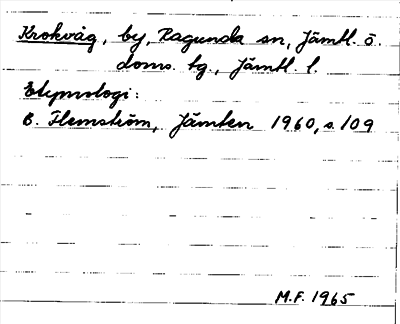 Krokvåg, by, Ragunda sn, Jämtl. ö.
doms. tg., Jämtl. l.
Etymologi:
E. Flemström, Jämten 1960, s. 109
M.F. 1965